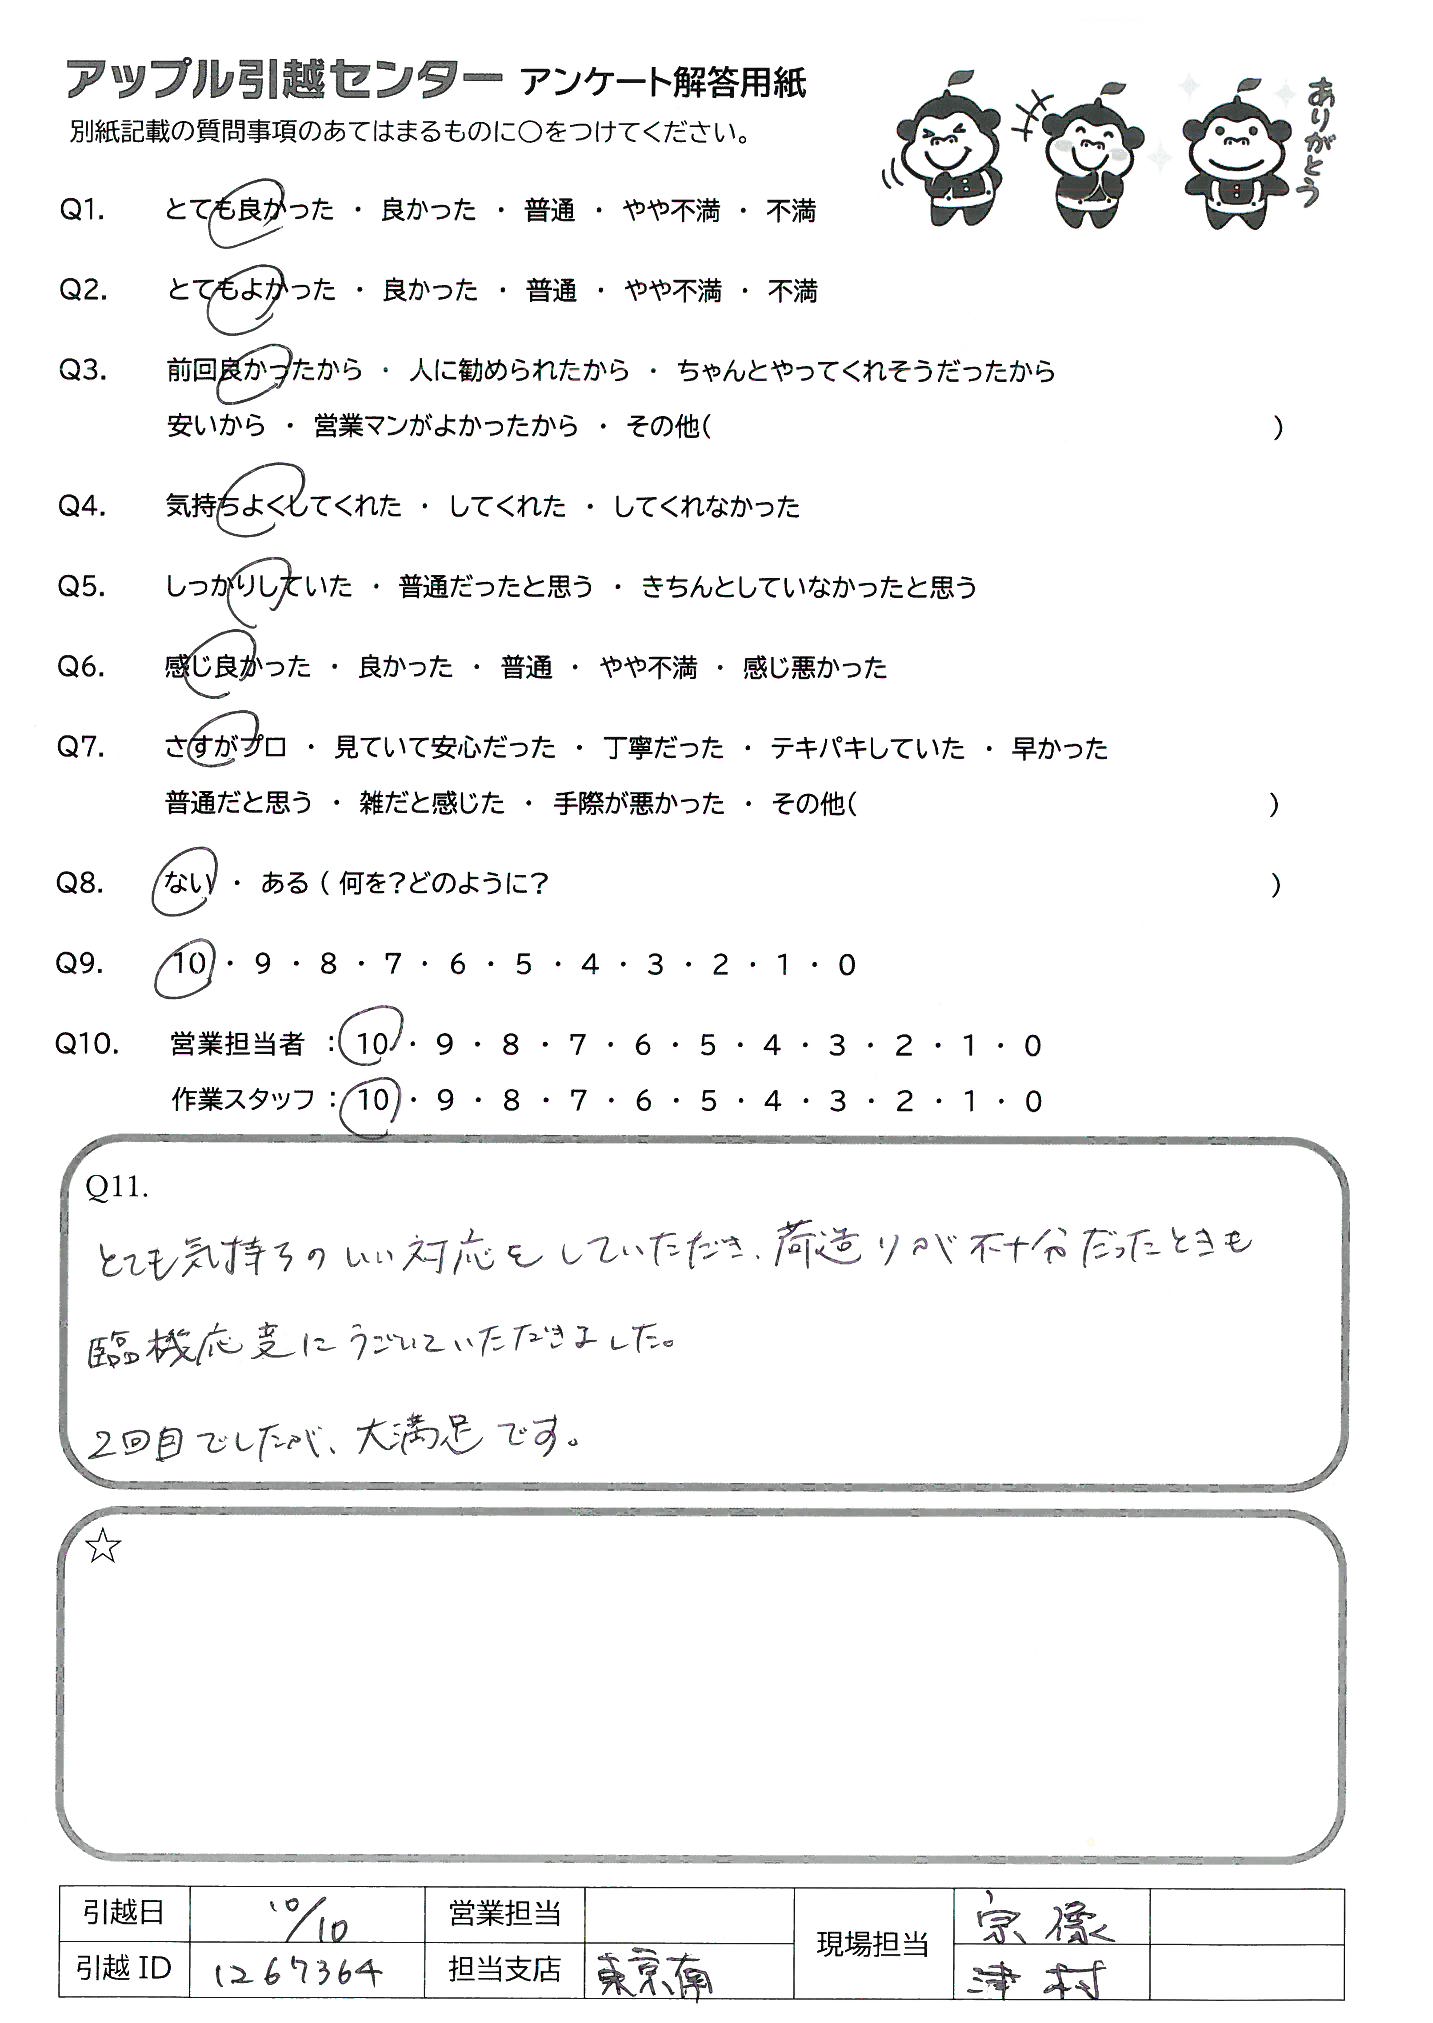 アップル引越センター アンケート解答用紙
別紙記載の質問事項のあてはまるものに〇をつけてください。
ありがとう
Q1. とても良かった ・ 良かった ・ 普通 ・ やや不満 ・ 不満
Q2. とてもよかった ・ 良かった ・ 普通 ・ やや不満 ・ 不満
Q3. 前回良かったから ・ 人に勧められたから ・ ちゃんとやってくれそうだったから
安いから ・ 営業マンがよかったから ・ その他( )
Q4. 気持ちよくしてくれた ・ してくれた ・ してくれなかった
Q5. しっかりしていた ・ 普通だったと思う ・ きちんとしていなかったと思う
Q6. 感じ良かった ・ 良かった ・ 普通 ・ やや不満 ・ 感じ悪かった
Q7. さすがプロ ・ 見ていて安心だった ・ 丁寧だった ・ テキパキしていた ・ 早かった
普通だと思う ・ 雑だと感じた ・ 手際が悪かった ・ その他( )
Q8. ない ・ ある ( 何を?どのように? )
Q9. 10 ・ 9 ・ 8 ・ 7 ・ 6 ・ 5 ・ 4 ・ 3 ・ 2 ・ 1 ・ 0
Q10. 営業担当者 : 10 ・ 9 ・ 8 ・ 7 ・ 6 ・ 5 ・ 4 ・ 3 ・ 2 ・ 1 ・ 0
作業スタッフ : 10 ・ 9 ・ 8 ・ 7 ・ 6 ・ 5 ・ 4 ・ 3 ・ 2 ・ 1 ・ 0
Q11.
とても気持ちのいい対応をしていただき、荷造りが不十分だったときも
臨機応変にうごいていただきました。
2回目でしたが、大満足です。
☆
引越日 10/10 営業担当 現場担当 宗像
引越ID 1267364 担当支店 東京南 津村